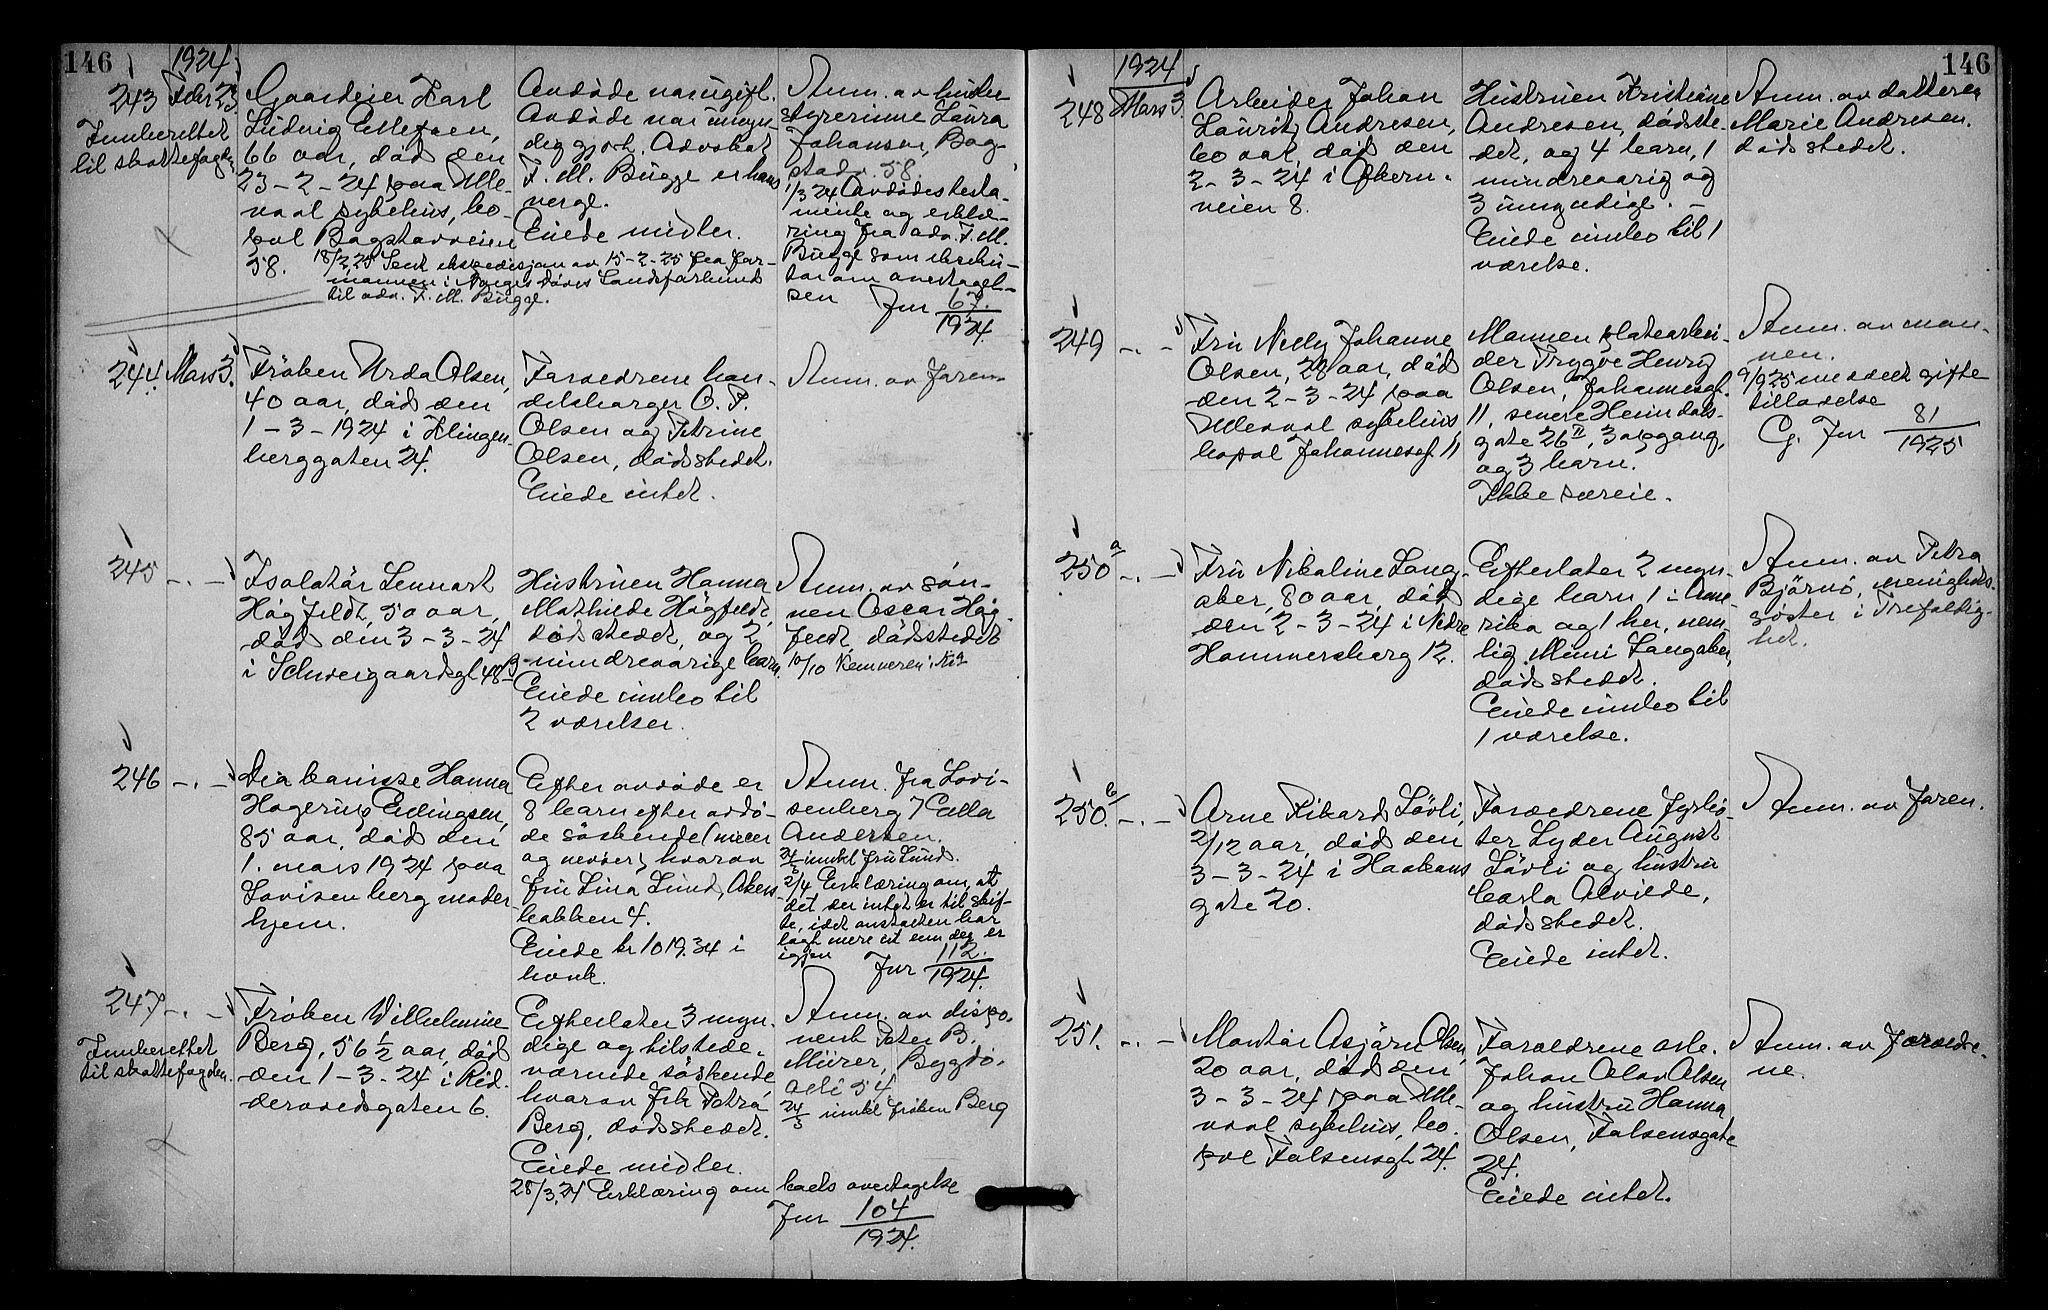 146
1924
243 Febr 23.
Innberettet
til skattefogden
Gaardeier Karl
Ludvig Ellefsen,
66 aar, död den
23-2-24 paa Ulle-
vaal sykehus, bo-
pæl Bogstadveien
58.
Avdöde var ugift.
Avdöde var umyn-
diggjort. Advokat
F. M. Bugge er hans
verge.
Eiede midler.
18/2 25 Sent ekspedisjon av 15-2-25 fra for-
mannen i Norges Döves Landsforbund
til adv. F. M. Bugge.
Anm. av husbe-
styrerinne Laura
Johansen, Bog-
stadv. 58.
1/3 24 Avdödes testa-
mente og erklæ-
ring fra adv. F. M.
Bugge som ekseku-
tor om overtagel-
sen Jnr 67.
1924.
244. Mars 3.
Fröken Urda Olsen,
40 aar, död den
1-3-1924 i Klingen-
berggaten 24.
Foreldrene han-
delsborger O. P.
Olsen og Petrine
Olsen, dödsstedet.
Eiede intet.
Anm. av faren.
245 -.-
Isolatör Lennart
Högfeldt, 50 aar,
död den 3-3-24
i Schweigaardsgt 48 B
Hustruen Hanna
Mathilde Högfeldt,
dödsstedet, og 2
mindreaarige barn.
Eiede innbo til
2 værelser.
Anm. av søn-
nen Oscar Hög-
feldt, dödsstedet
10/10 Kemneren
246 -.-
Diakonisse Hanna
Hagerup Erlingsen,
85 aar, död den
1. mars 1924 paa
Lovisenberg moder-
hjem.
Efter avdöde er
8 barn efter avdö-
de söskende (niecer
og nevöer), hvorav
fru Lina Lund, Akers-
bakken 4.
Eiede kr 1019.34 i
bank.
Anm. fra Lovi-
senberg
Andersen.
24/3 innkl fru Lund.
2/4 Erklæring om, at
det der intet er til skif-
te, idet anstalten har
lagt mere ut enn der er
igjen Jnr 112.
1924.
247 -.-
Innberettet
til skattefogden.
Fröken Vilhelmine
Berg, 56 1/2 aar, död
den 1-3-24 i Rid-
dervoldsgaten 6.
Efterlater 3 myn-
dige og tilstede-
værende söskende
hvorav frk Petra
Berg, dödsstedet.
Eiede midler.
28/3.24 Erklæring om boets overtagelse
Jnr 104
1924.
Anm. av dispo-
nent Peter B.
Mürer, Bygdö
alle 54.
24/3 innkl fröken Berg
146
1924
248 Mars 3.
Arbeider Johan
Lauritz Andresen,
60 aar, död den
2-3-24 i Økern-
veien 8.
Hustruen Kristiane
Andresen, dödsste-
det, og 4 barn, 1
mindreaarig og
3 umyndige. -
Eiede innbo til 1
værelse.
Anm. av datteren
Marie Andresen.
dödsstedet.
249 -.-
Fru Nelly Johanne
Olsen, 28 aar, död
den 2-3-24 paa
Ullevaal sykehus
bopæl Johannesgt. 11
Mannen platearbei-
der Trygve Henry
Olsen, Johannesgt.
11, senere Heimdals-
gate 26 II, 3 opgang,
og 3 barn.
Ikke særeie.
Anm. av man-
nen.
9/9 25 meddelt gifte
tilladelse
G. Jnr 81
1925
250 a -.-
Fru Nikoline Lang-
aker, 80 aar, död
den 2-3-24 i Nedre
Hammersborg 12.
Efterlater 2 myn-
dige barn, 1 i Ame-
rika og 1 her, nem-
lig Mimi Langaker,
dödsstedet.
Eiede innbo til
1 værelse.
Anm. av Petra
Björnö, menighets-
söster i Trefoldig-
het.
250. b -.-
Arne Rikard Lövli,
2/12 aar, död den
3-3-24 i Haakons
gate 20.
Foreldrene fyrbö-
ter Lyder August
Lövli og hustru
Carla Alvilde,
dödsstedet.
Eiede intet.
Anm. av faren.
251. -.-
Montör Asjörn Olsen,
20 aar, död den
3-3-24 paa Ulle-
vaal sykehus, bo-
pæl Falsensgt. 24.
Foreldrene arb.
Johan Olav Olsen
og hustru Hanna
Olsen, Falsensgate
24.
Eiede intet.
Anm. av foreldre-
ne.